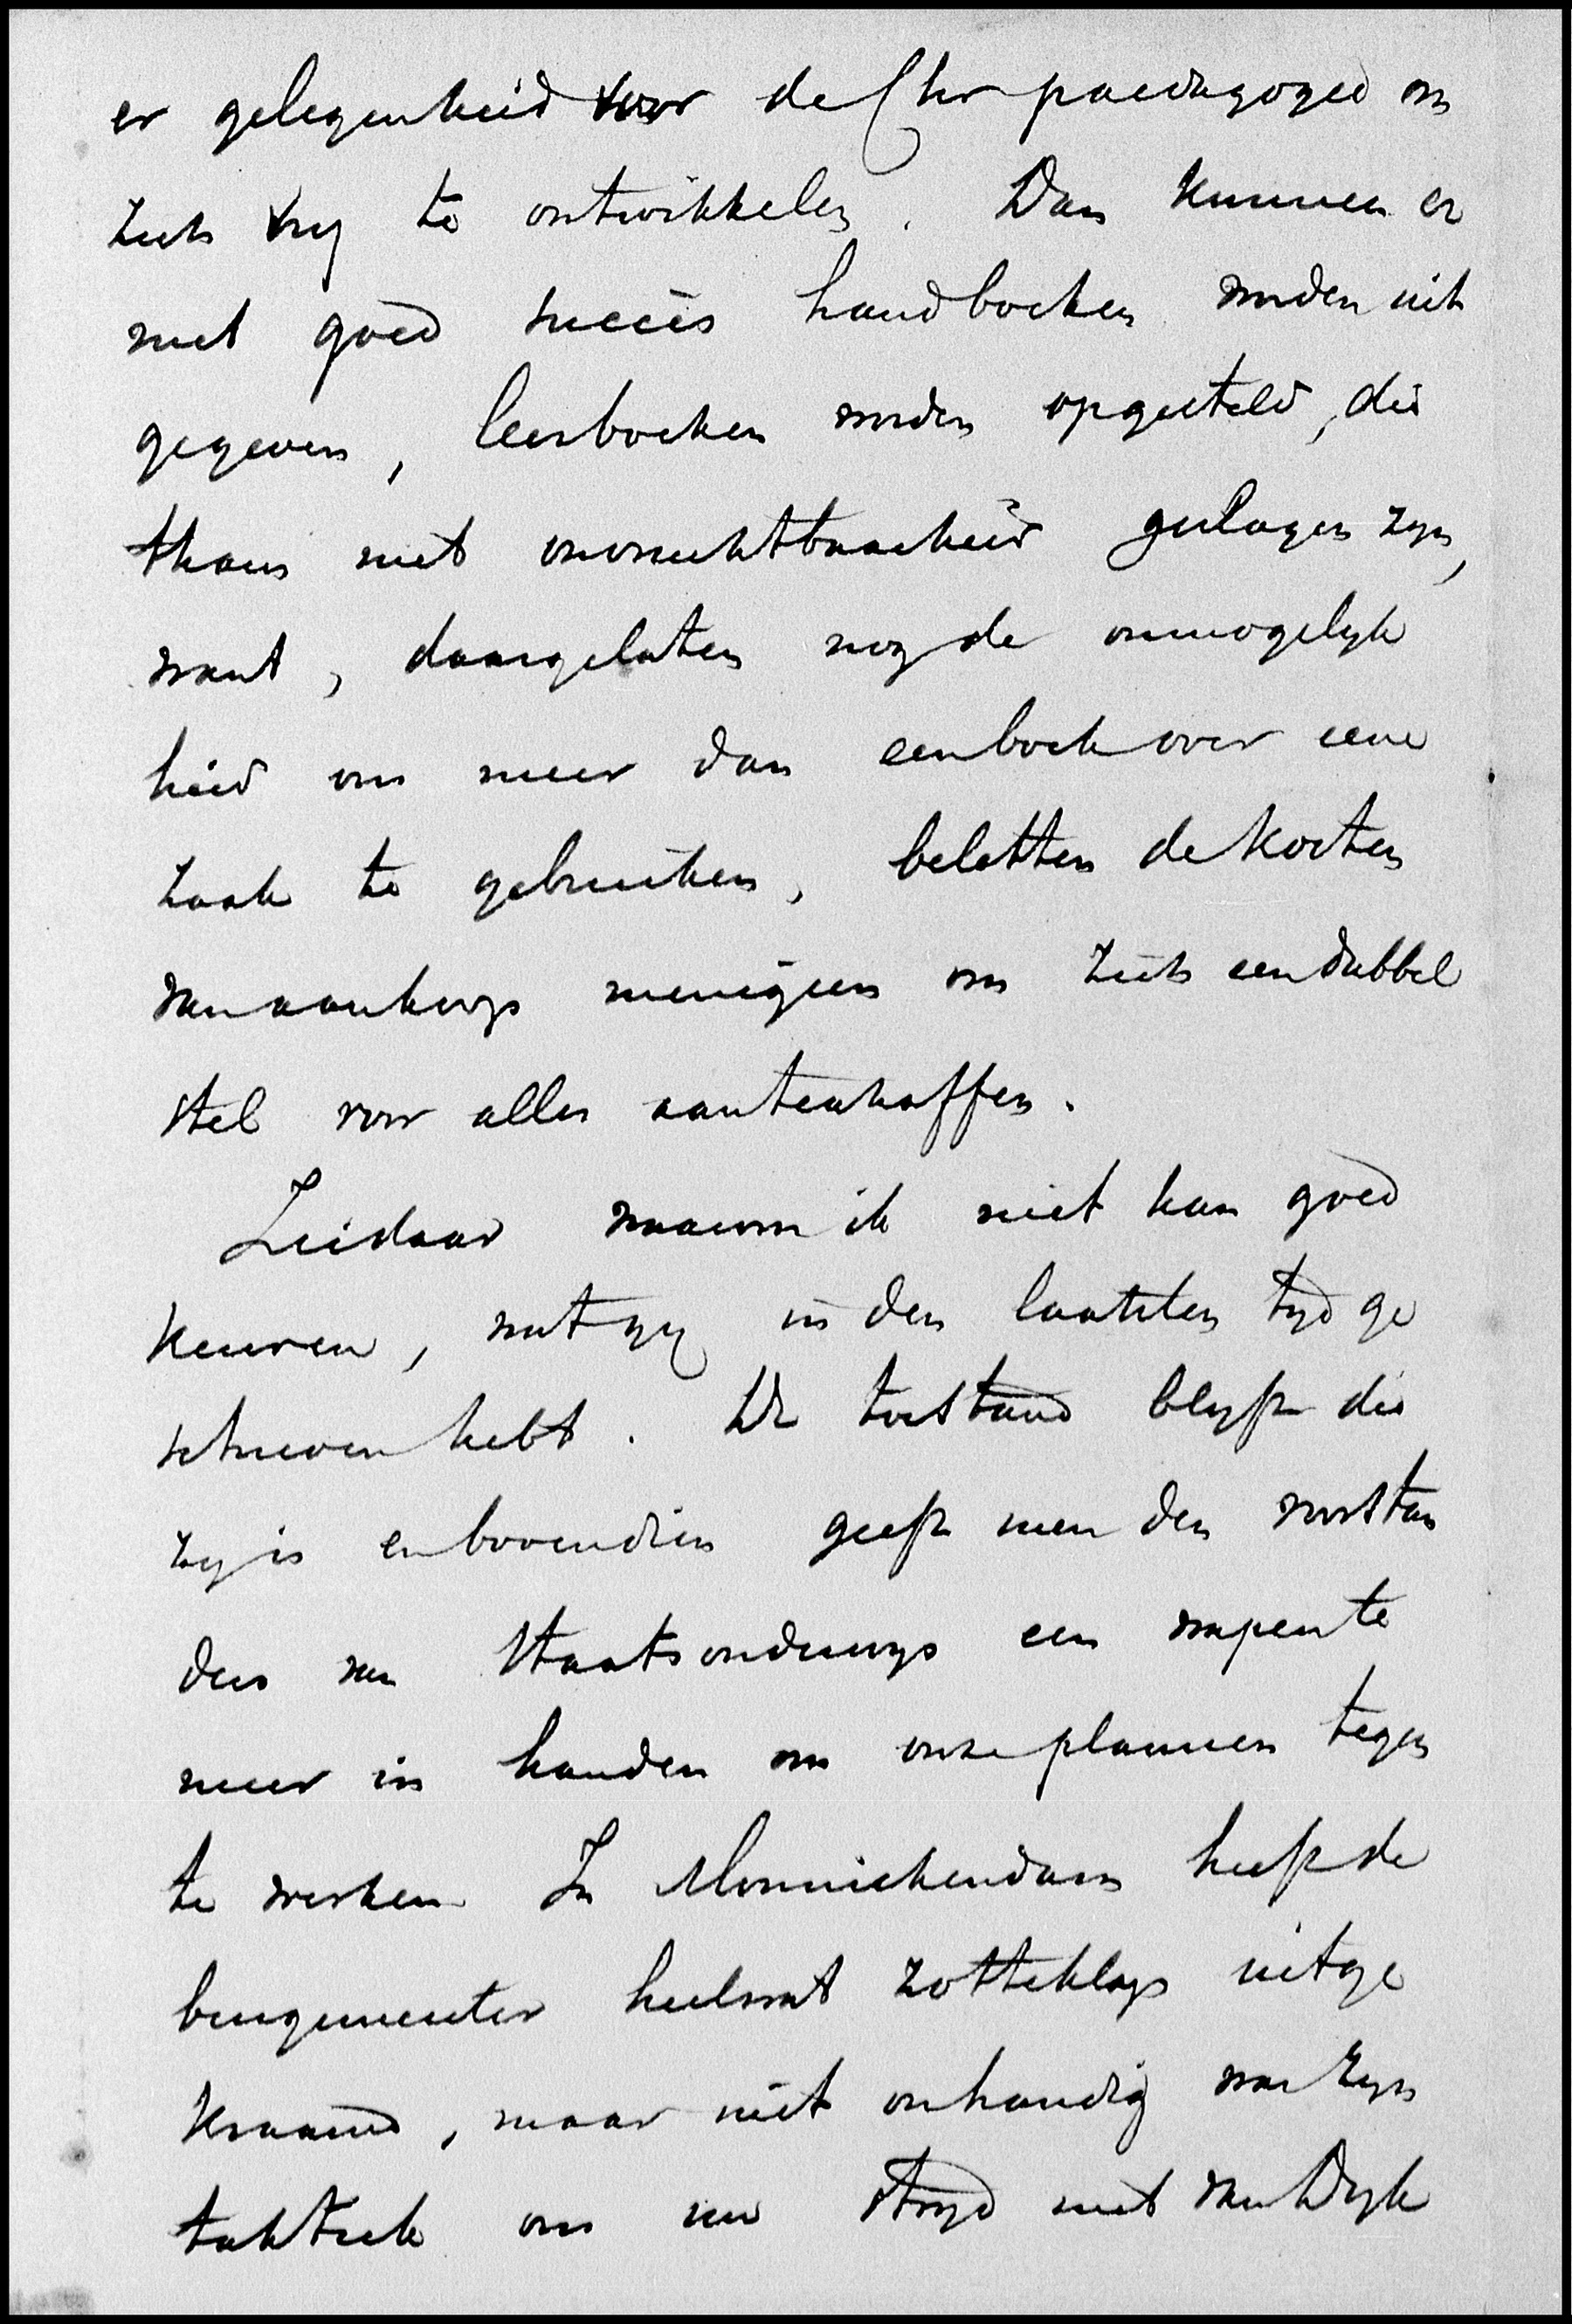 er gelegenheid voor de Chr paedagogie om
zich vrij te ontwikkelen. Dan kunnen er
met goed succès handboeken worden uit
gegeven, leerboeken worden opgesteld, die
thans met onvruchtbaarheid geslagen zijn,
want, daargelaten nog de onmogelijk
heid om meer dan een boek over eene
zaak te gebruiken, beletten de kosten
van aankoop menigeen om zich een dubbel
stel voor alles aanteschaffen.
Ziedaar waarom ik niet kan goed
keuren, wat gij in den laatsten tijd ge
schreven hebt. De toestand blijft die
zij is en bovendien geeft men den voorstan
ders van Staatsonderwijs een wapen te
meer in handen om onze plannen tegen
te werken In Monnickendam heeft de
burgemeester heelwat zotteklap uitge
kraamd, maar niet onhandig was zijn
taktiek om uw strijd met van Dijk